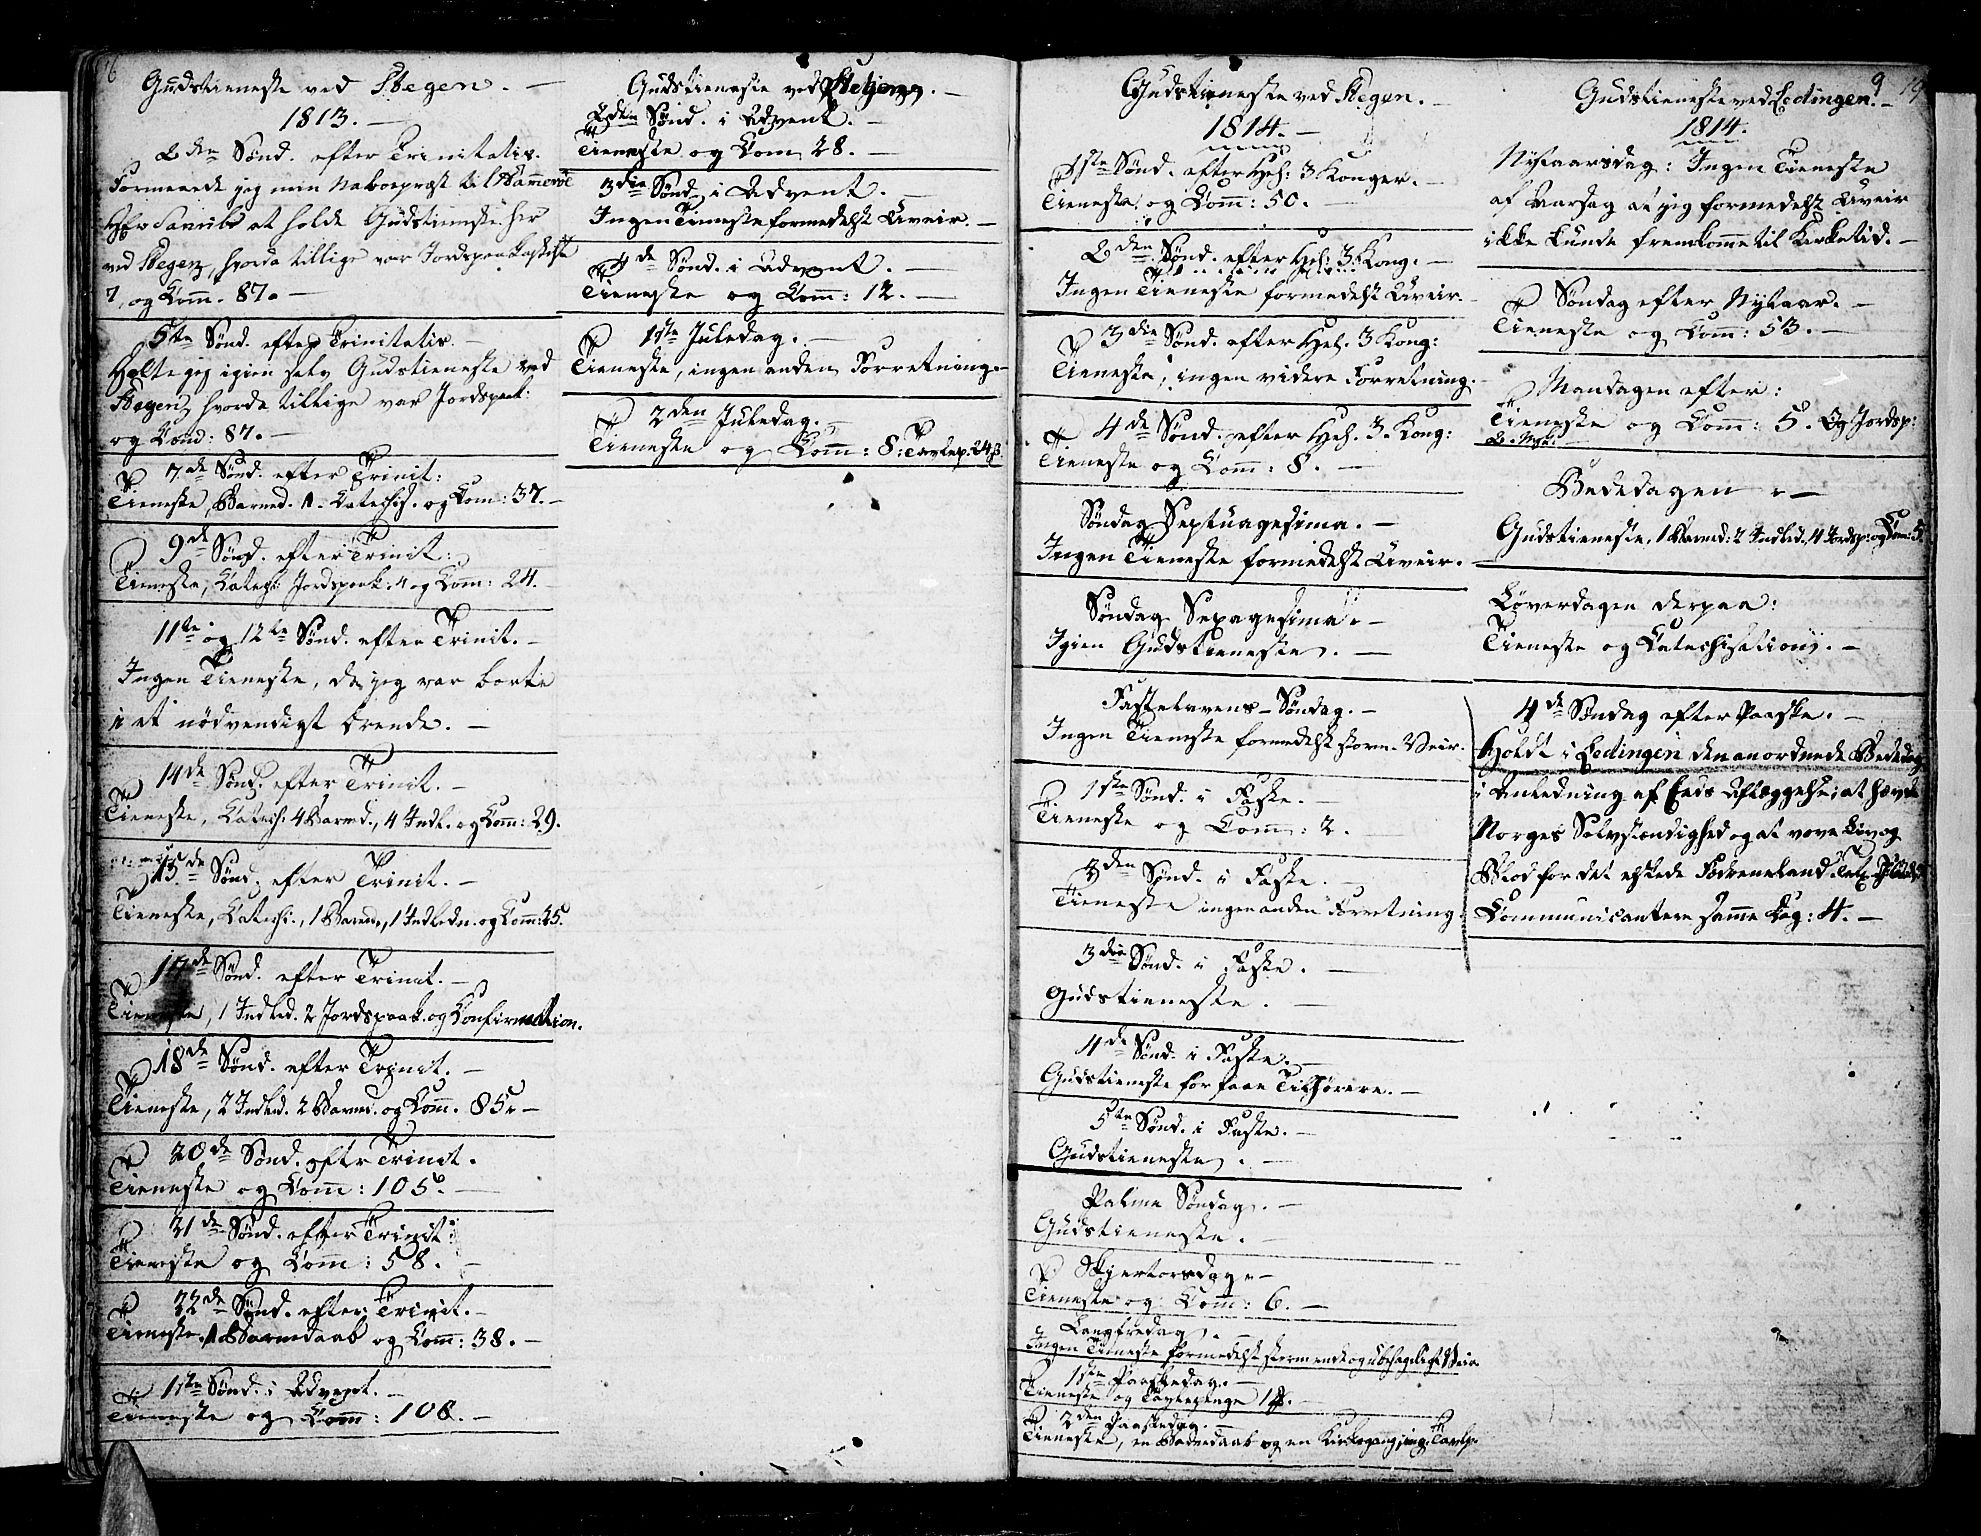 Gudstieneste ved Stegen. —
1813. —
2den Sønd. efter Trinitatis.
Formaaede jeg min Naboepræst til Hammerøe
at holde Gudstieneste her
ved Stegen, hvorda tillige var Jordspaakastelse
7, og Comm. 87. —
5te Sønd. efter Trinitatis. —
Holte jeg igien selv Gudstieneste ved
Stegen, hvorda tillige var Jordspaak:
og Comm: 87. —
7de Sønd. efter Trinit:
Tieneste, Barned. 1. Catechis. og Com: 37. —
9de Sønd. efter Trinit:
Tieneste, Catech: Jordspaak: 4 og Com: 24. —
11te og 12te Sønd. efter Trinit. —
Ingen Tieneste, da jeg var borte
i et nödvendigt Erende. —
14de Sønd. efter Trinit. —
Tieneste, Catech: 4 Barned., 4 Indl. og Comm: 29.
15de Sønd. efter Trinit. —
Tieneste, Catechi., 1 Barned., 1 Indledn. og Comm: 45.
17de Sønd. efter Trinit. —
Tieneste, 1 Indled. 2 Jordspaak. og Confirmation.
18de Sønd. efter Trinit. —
Tieneste, 2 Indled. 2 Barned. og Comm. 85. —
20de Sønd. efter Trinit.
Tieneste og Comm: 105. —
21de Sønd. efter Trinit:
Tieneste og Comm: 58. —
22de Sønd. efter Trinit. —
Tieneste, 1 Barnedaab og Comm: 38. —
1ste Sønd. i Advent. —
Tieneste og Comm: 108. —
Gudstieneste ved Stegen. —
2den Sønd. i Advent. —
Tieneste og Com 28. —
3die Sønd. i Advent. —
Ingen Tieneste formedelst Uveir. —
4de Sønd. i Advent. —
Tieneste og Comm: 12. —
1ste Juledag. —
Tieneste, ingen anden Forretning. —
2den Juledag. —
Tieneste og Comm: 8: Tavlep: 24 s.
Gudstieneste ved Stegen. —
1814. —
1ste Sønd. efter Hel: 3 Konger. —
Tieneste og Comm: 50. —
2den Sønd. efter Hel: 3 Kong. —
Ingen Tieneste formedelst Uveir. —
3die Sønd. efter Hel. 3 Kong:
Tieneste, ingen videre Forretning. —
4de Sønd. efter Hel. 3. Kong:
Tieneste og Comm: 8. —
Søndag Septuagesima. —
Ingen Tieneste formedelst Uveir. —
Søndag Sexagesima. —
Igien Gudstieneste. —
Fastelavens-Søndag. —
Ingen Tieneste formedelst storm-Veir. —
1ste Sønd. i Faste. —
Tieneste og Comm: 2. —
2den Sønd. i Faste. —
Tieneste ingen anden Forretning
3die Sønd. i Faste. —
Gudstieneste. —
4de Sønd. i Faste. —
Gudstieneste for faae Tilhørere. —
5te Sønd. i Faste. —
Gudstieneste. —
Palme Søndag. —
Gudstieneste. —
Skjertorsdag. —
Tieneste og Comm: 6. —
Langfredag. —
Ingen Tieneste formedelst stormende og ubehageligt Veir.
1ste Paaskedag. —
Tieneste og Tavlepenge
2den Paaskedag. —
Tieneste, en Barnedaab og en Kirkegang, ing: Tavlp.
9 19
Gudstieneste ved Lødingen. —
1814.
Nytaarsdag: Ingen Tieneste
af Aarsag at jeg formedelst Uveir
ikke kunde fremkomme til Kirketid. —
Søndag efter Nytaar. —
Tieneste og Comm: 53. —
Mandagen efter:
Tieneste og Comm: 5. Og Jordsp:
Bededagen. —
Gudstieneste, 1 Barned: 2 Indled., 4 Jordsp: og Com: 5.
Løverdagen derpaa:
Tieneste og Catechisation. —
4de Søndag efter Paaske. —
Holdt i Lødingen den anordnede Bededag
i Anledning af Eeds Aflæggelse, at hævde
Norges Selvstændighed og at vove Liv og
Blod for det elskede Fædreneland.
Communicantere samme Dag: 4. —